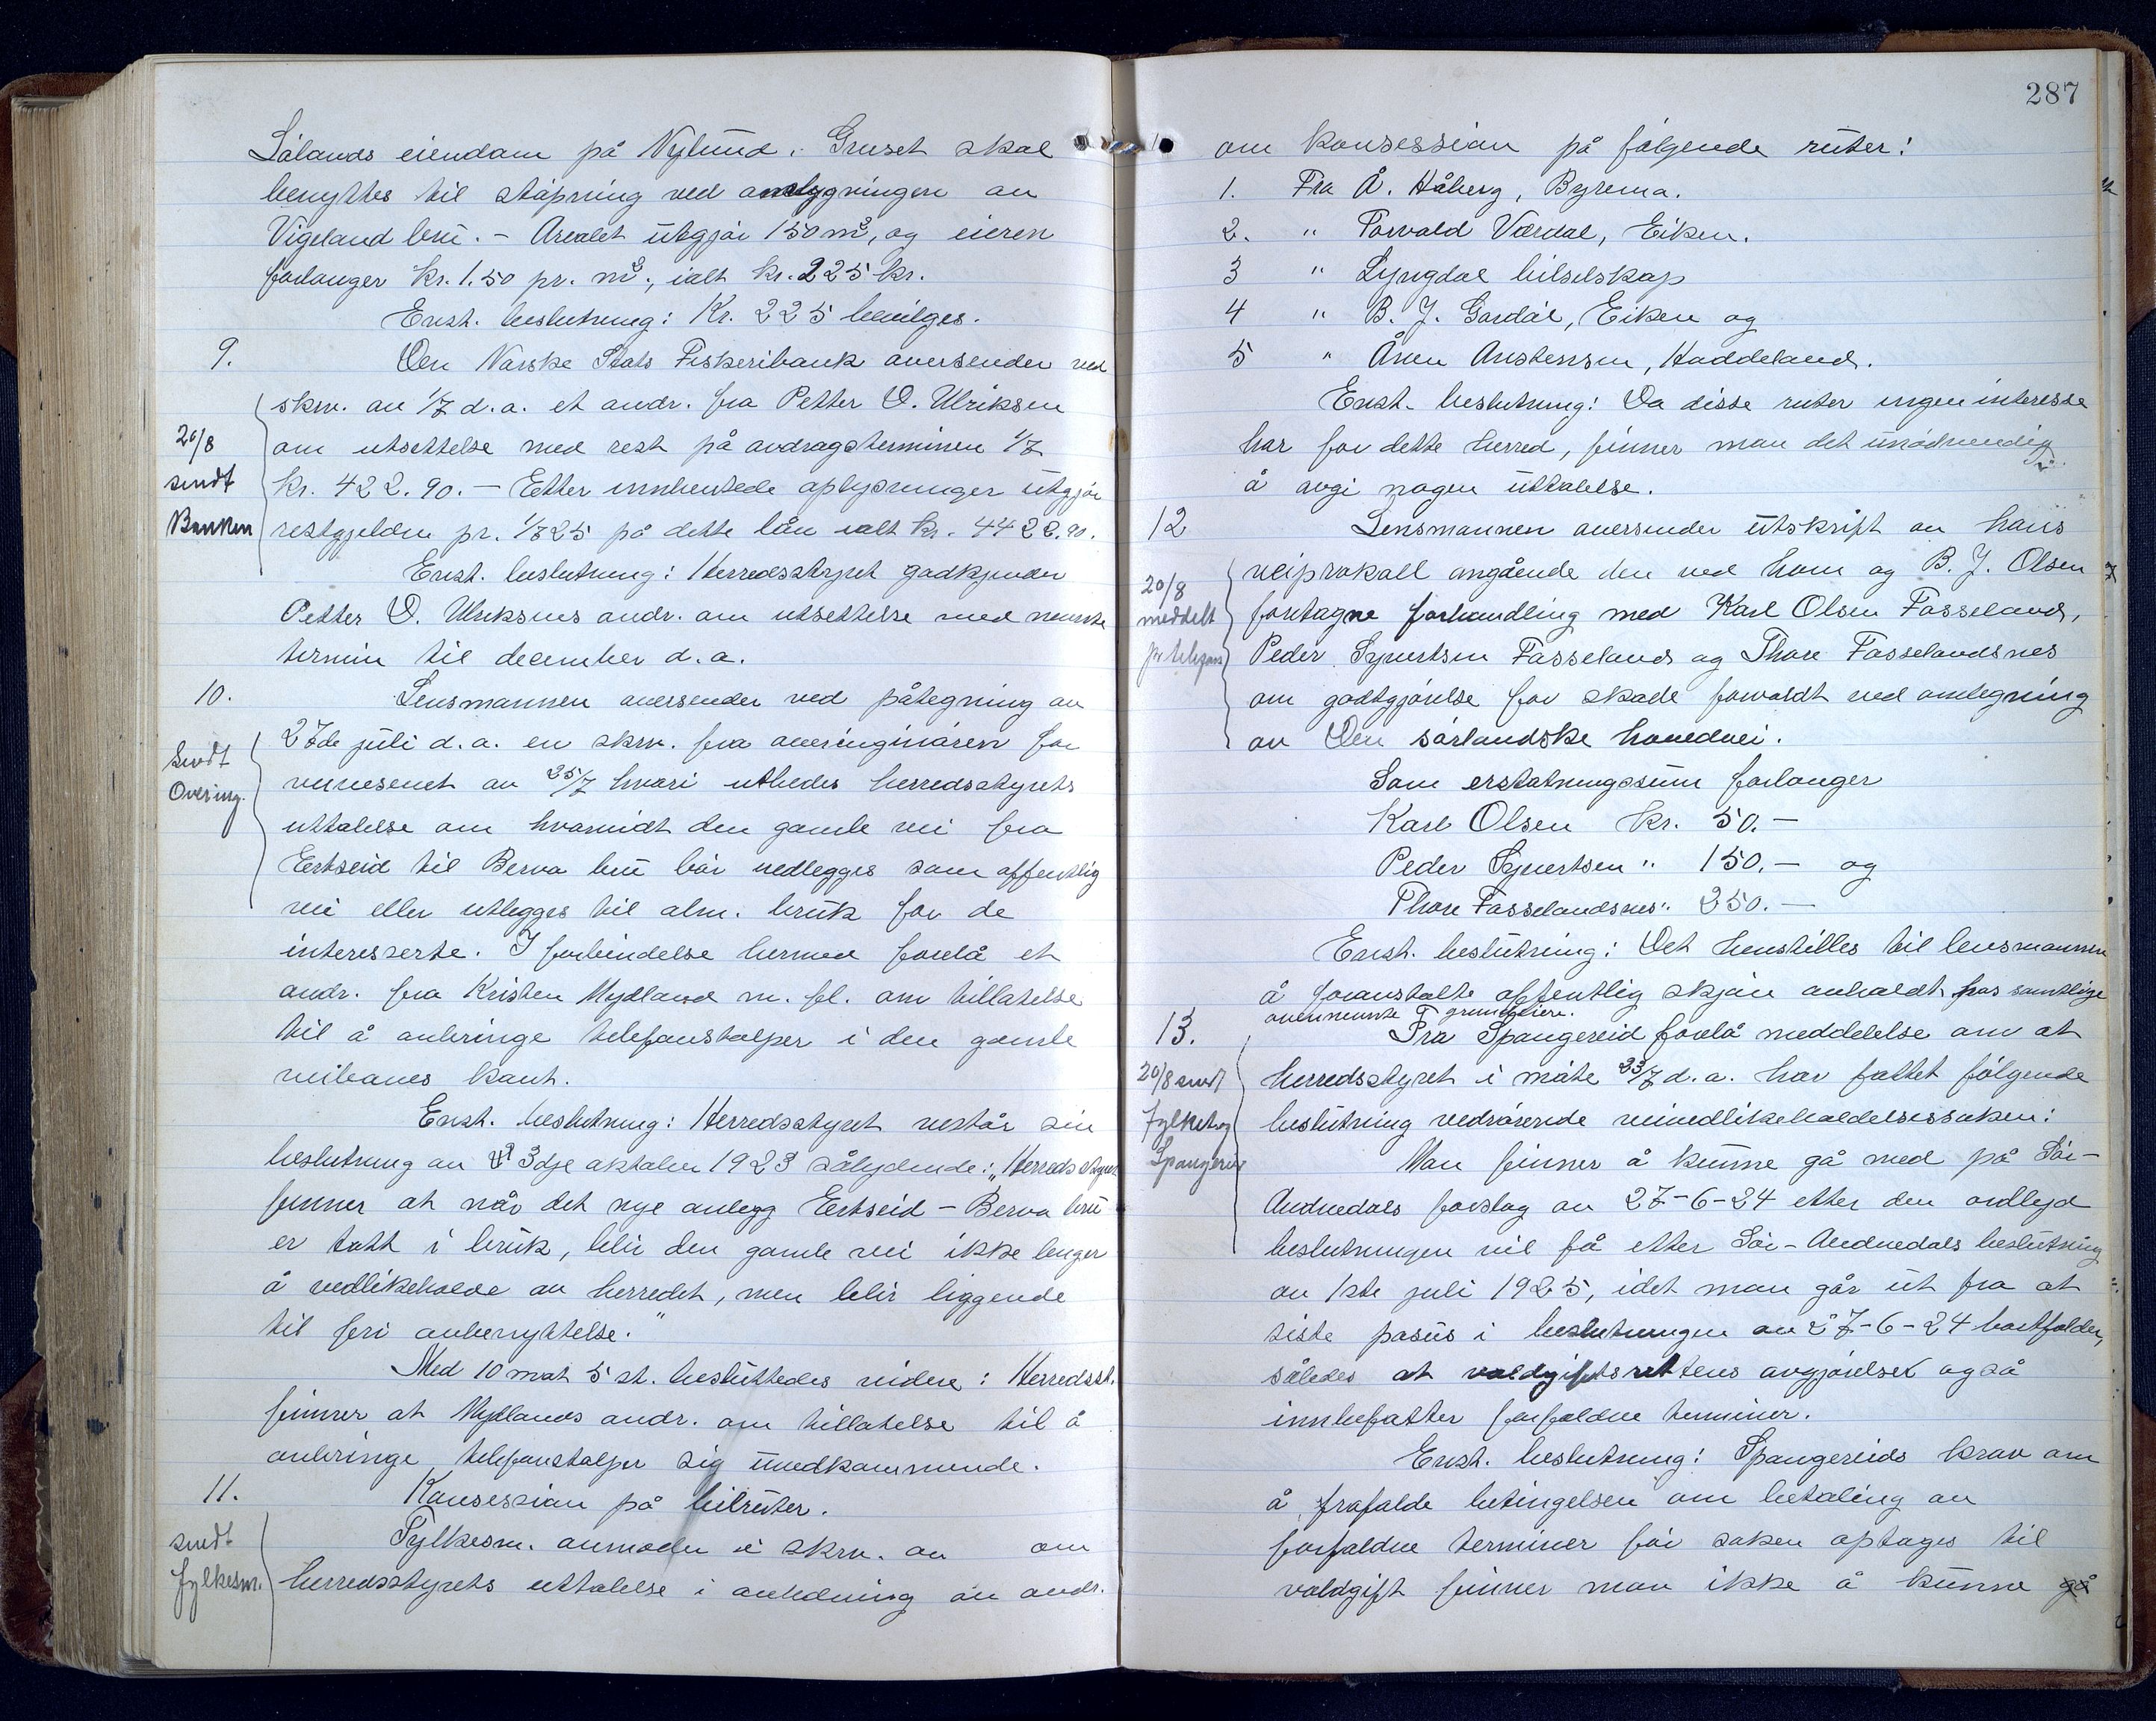 Sålands eiendom på Nylund. Gruset skal
benyttes til støpning ved ombygningen av
Vigeland bru. - Arealet utgjør 150 m², og eieren
forlanger kr. 1.50 pr. m², ialt kr. 225 kr.
Enst. beslutning: Kr. 225 bevilges.
9. Den Norske Stats Fiskeribank oversender ved
skrv. av 1/7 d.a. et andr. fra Petter O. Ulriksen
20/8 om utsettelse med rest på avdragsterminen 1/7
sendt kr. 422.90. - Etter innhentede oplysninger utgjør
Banken restgjelden pr. 1/7 25 på dette lån ialt kr. 4422.90.
Enst. beslutning: Herredsstyret godkjender
Petter O. Ulriksens andr. om utsettelse med nevnte
termin til december d.a.
10. Lensmannen oversender ved påtegning av
27de juli d.a. en skrv. fra overingeniøren for
sendt
Overing. veivesenet av 25/7 hvori utbedes herredsstyrets
uttalelse om hvorvidt den gamle vei fra
Eertseid til Berva bru bør nedlegges som offentlig
vei eller utlegges til alm. bruk for de
interesserte. I forbindelse hermed forelå et
andr. fra Kristen Mydland m. fl. om tillatelse
til å anbringe telefonstolper i den gamle
veibanes kant.
Enst. beslutning: Herredsstyret vestår sin
beslutning av 3dje oktober 1923 sålydende: "Herredsstyret
finner at når det nye anlegg Eertseid - Berva bru
er tatt i bruk, blir den gamle vei ikke lenger
å vedlikeholde av herredet, men blir liggende
til fri anbenyttelse."
Med 10 mot 5 st. besluttedes videre: Herredsst.
finner at Mydlands andr. om tillatelse til å
anbringe telefonstolper sig uvedkommende.
11. Konsession på bilruter.
sendt Fylkesm. anmoder i skrv. av om
fylkesm. herredsstyrets uttalelse i anledning av andr.
287
om konsession på følgende ruter:
1. Fra Å. Håberg, Byremo.
2. " Torvald Værdal, Eiken.
3 " Lyngdal bilselskap
4 " B. J. Gardål, Eiken og
5 " Ånen Anstensen, Haddeland.
Enst. beslutning: Da disse ruter ingen interesse
har for dette herred, finner man det unødvendig
å avgi nogen uttalelse.
12 Lensmannen oversender utskrift av hans
20/8 veiprotokoll angående den ved ham og B. J. Olsen
meddelt foretagne forhandling med Karl Olsen Fosseland,
pr telefon Peder Syvertsen Fosseland og Thore Fosselandsnes
om godtgjørelse for skade forvoldt ved omlegning
av Den sørlandske hovedvei.
Som erstatningssum forlanger
Karl Olsen kr. 50.-
Peder Syvertsen " 150.- og
Thore Fosselandsnes " 250.-
Enst. beslutning: Det henstilles til lensmannen
å foranstalte offentlig skjøn avholdt hos samtlige
ovennevnte grundeiere.
13. Fra Spangereid forelå meddelelse om at
20/8 sendt herredsstyret i møte 23/7 d.a. har fattet følgende
fylket og beslutning vedrørende veivedlikeholdelsessaken:
Spangereid Man finner å kunne gå med på Sør-
Audnedals forslag av 27-6-24 etter den ordlyd
beslutningen vil få etter Sør-Audnedals beslutning
av 1ste juli 1925, idet man går ut fra at
siste pasus i beslutningen av 27-6-24 bortfalder,
således at voldgiftsrettens avgjørelse også
innbefatter forfaldne terminer.
Enst. beslutning: Spangereids krav om
å frafalde betingelsen om betaling av
forfaldne terminer før saken optages til
voldgift finner man ikke å kunne gå